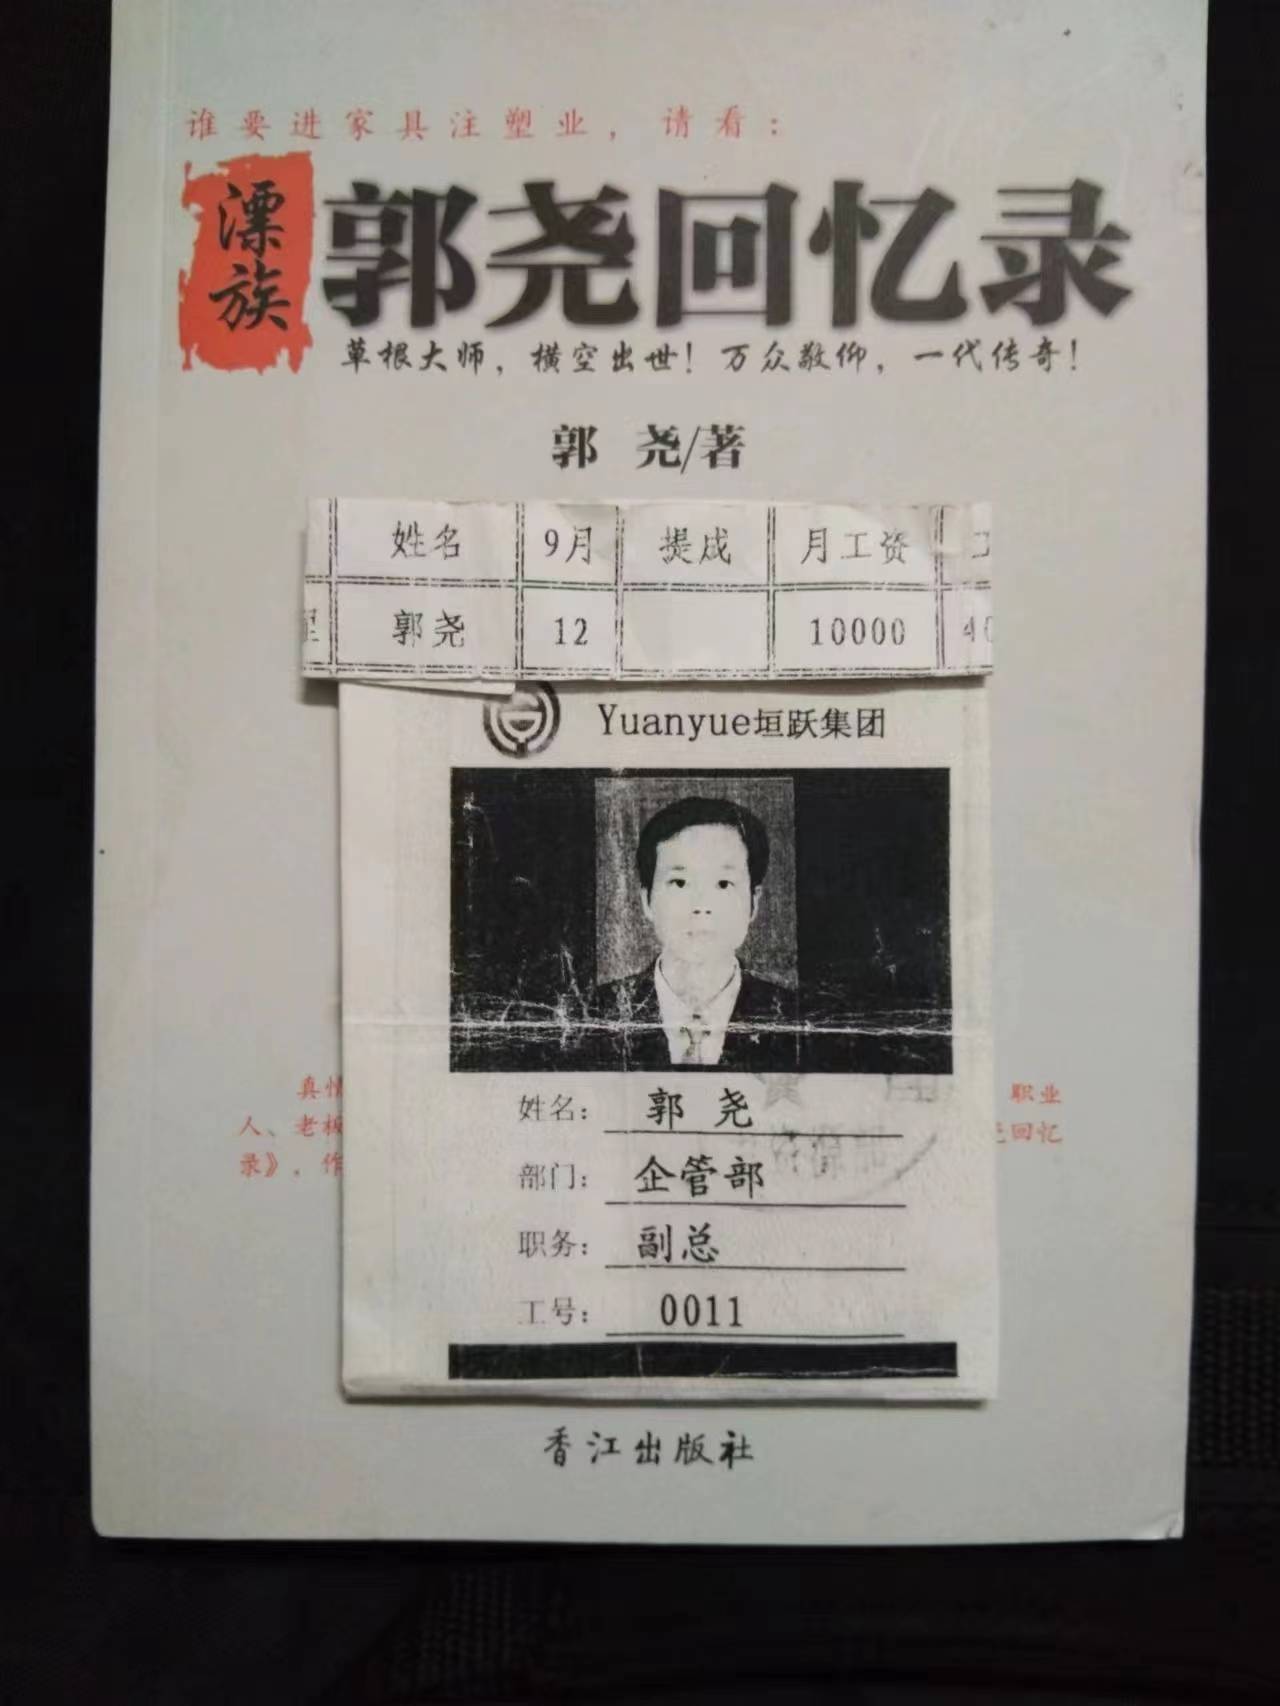 谁要进家具注塑业，请看：
漂族
郭尧回忆录
草根大师，横空出世！万众敬仰，一代传奇！
郭 尧/著
姓名 9月 提成 月工资
郭尧 12 10000 40
Yuanyue垣跃集团
姓名： 郭 尧
部门： 企管部
职务： 副总
工号： 0011
真情 职业
人、老板 回忆
录》，作
香江出版社